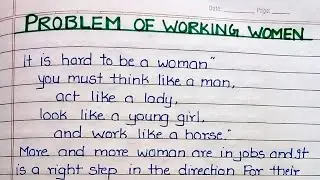 Date: Page:
PROBLEM OF WORKING WOMEN
It is hard to be a woman"
you must think like a man,
act like a lady,
look like a young girl,
and work like a horse."
More and more woman are in jobs and it
is a right step in the direction For their